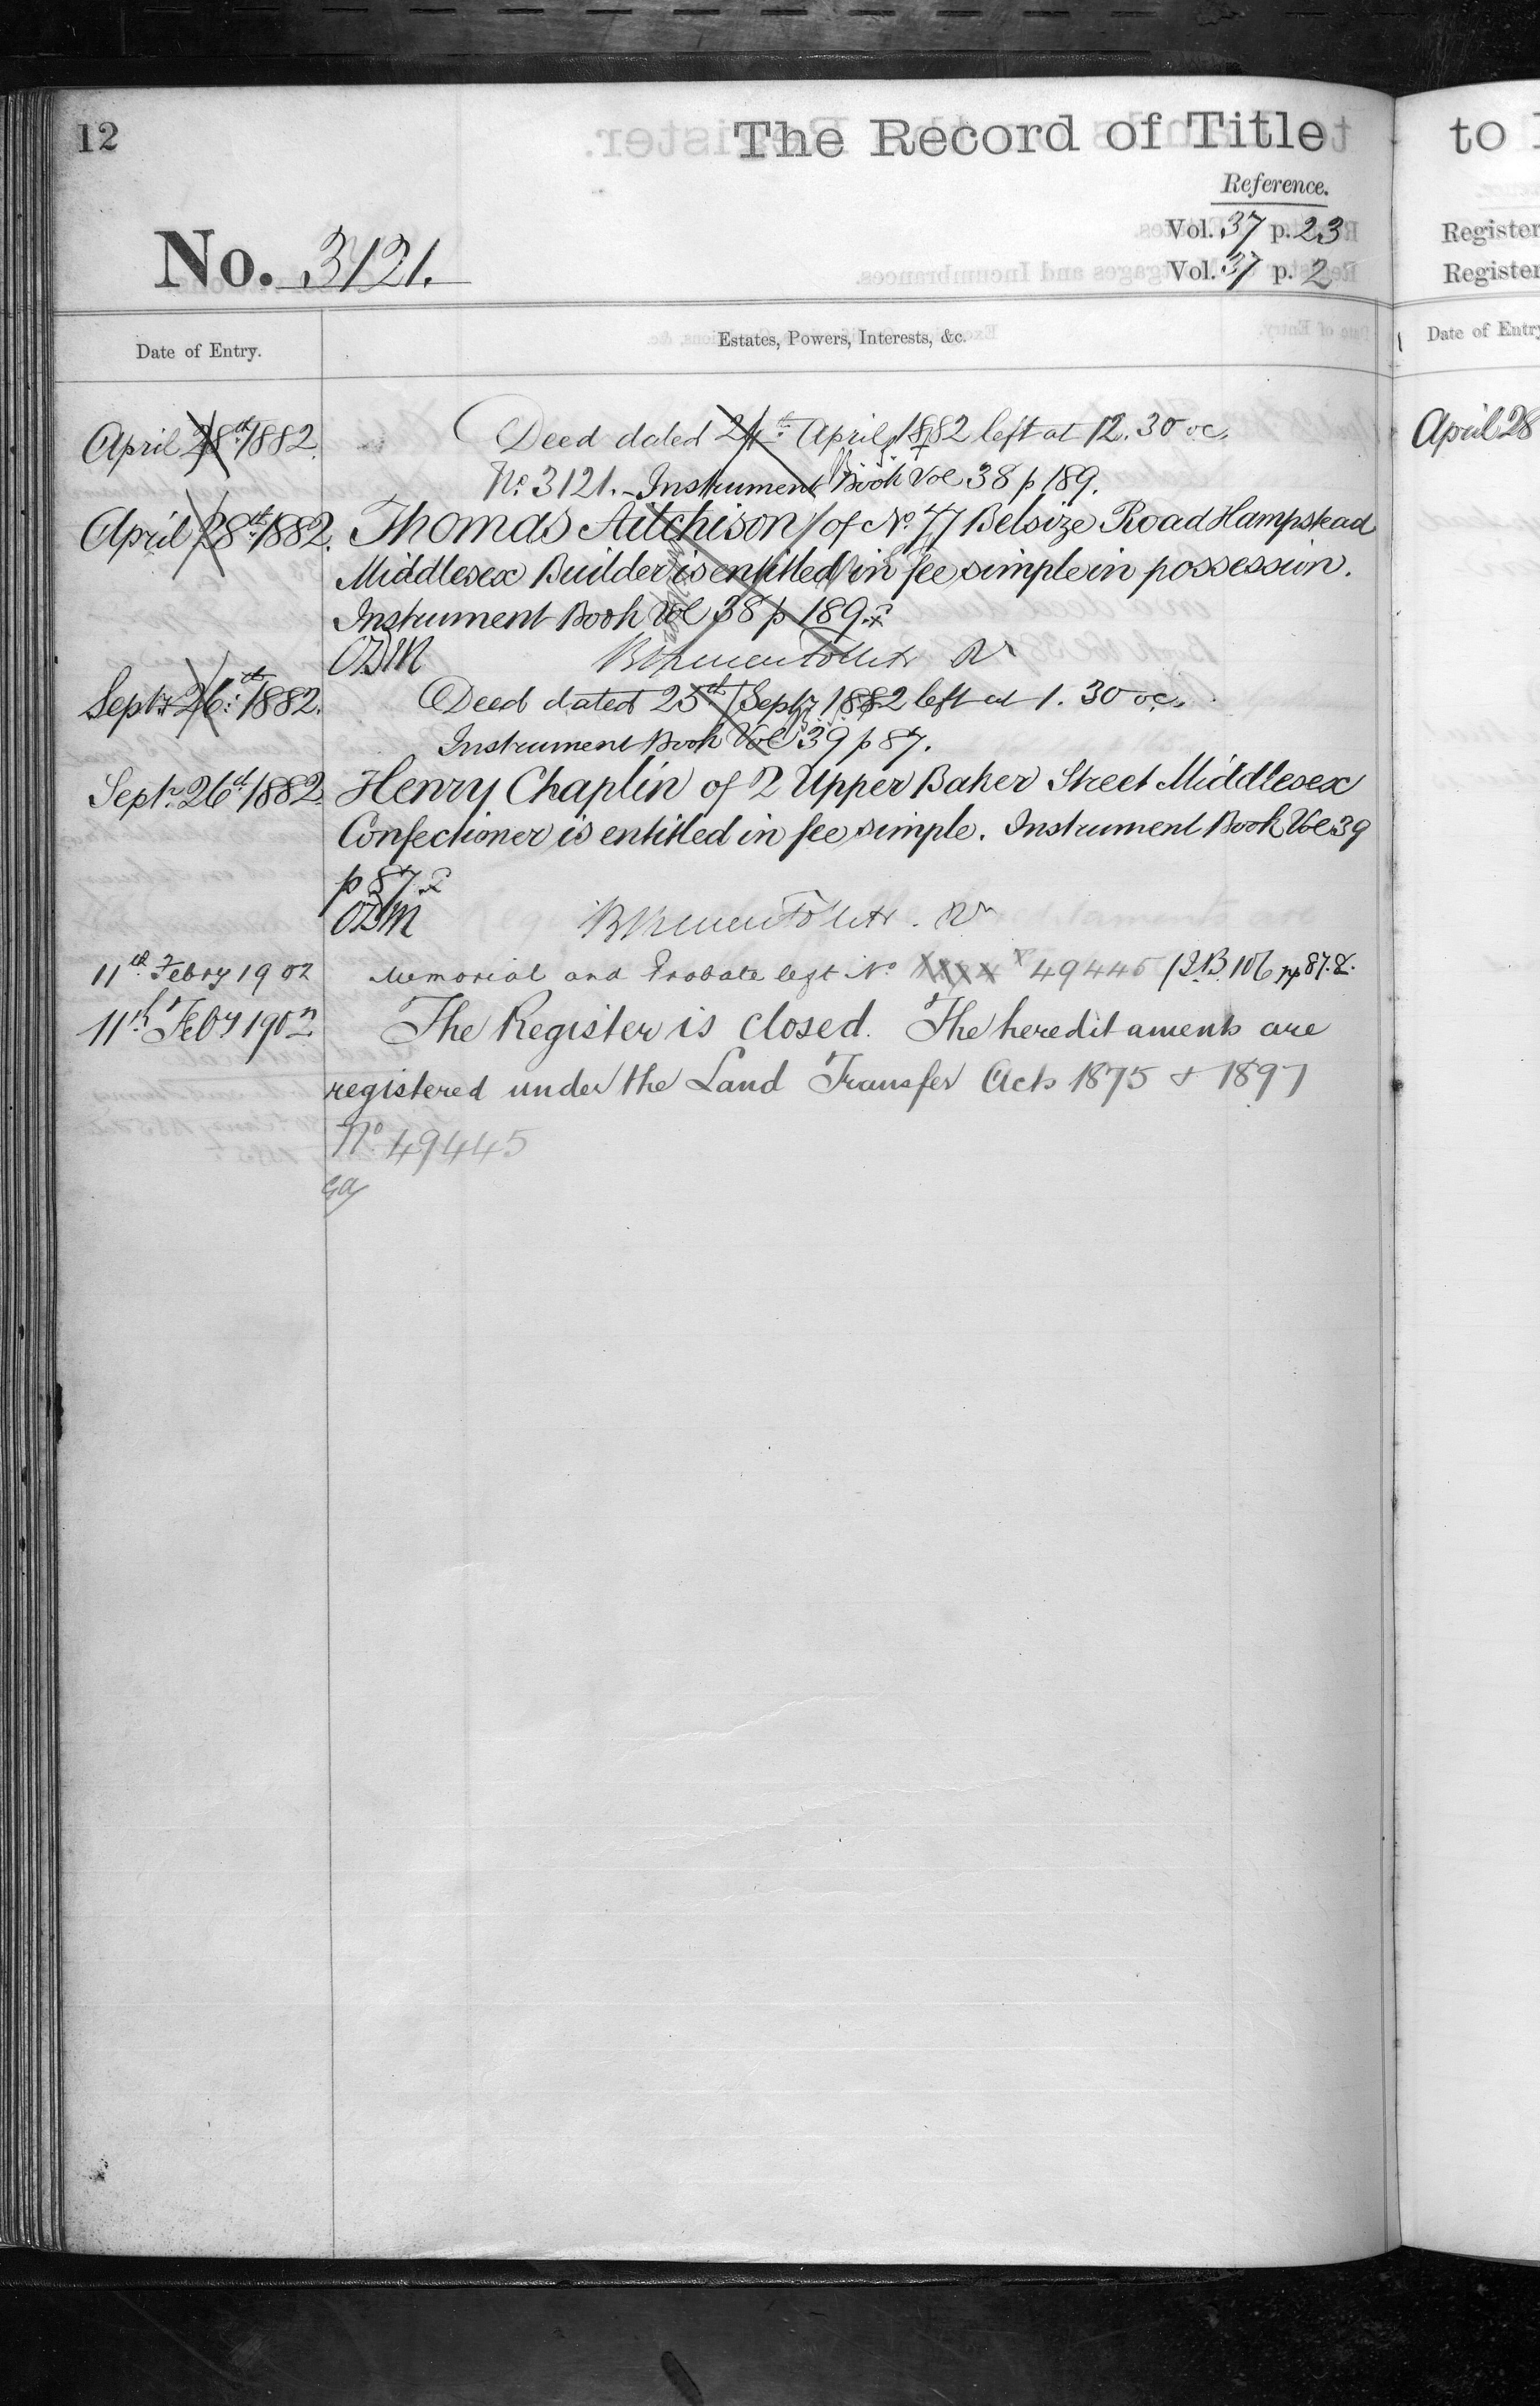 12
The Record of Title
Reference.
No. 3121.
Vol. 37 p. 23
Vol. 37 p. 2
Date of Entry.
Estates, Powers, Interests, &c.
April 28th 1882.
Deed dated 24th April 1882 left at 12.30 oc.
No. 3121. - Instrument Book Vol 38 p 189.
April 28th 1882.
Thomas Aitchison of No. 77 Belsize Road Hampstead
Middlesex Builder is entitled in fee simple in possession.
Instrument Book Vol 38 p 189.
Septr 26th 1882.
Deed dated 25th Septr 1882 left at 1.30 oc.
Instrument Book Vol 39 p 87.
Septr 26th 1882.
Henry Chaplin of 2 Upper Baker Street Middlesex
Confectioner is entitled in fee simple. Instrument Book Vol 39
p 87.
11th Febry 1902
Memorial and Probate left No 49445 I.B. 106 pp 87.8.
11th Feby 1902
The Register is closed. The hereditaments are
registered under the Land Transfer Acts 1875 & 1897
No 49445
to
Register
Register
Date of Entry
April 28